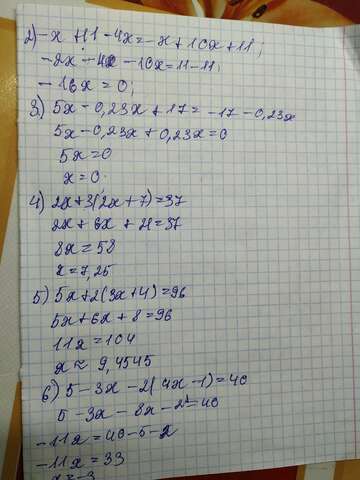 2) -x + 11 - 4x = -x + 10x + 11;
-2x - 4x - 10x = 11 - 11;
- 16x = 0;
3) 5x - 0,23x + 17 = -17 - 0,23x
5x - 0,23x + 0,23x = 0
5x = 0
x = 0
4) 2x + 3(2x + 7) = 37
2x + 6x + 21 = 37
8x = 58
x = 7,25
5) 5x + 2(3x + 4) = 96
5x + 6x + 8 = 96
11x = 104
x ≈ 9,4545
6) 5 - 3x - 2(4x - 1) = 40
5 - 3x - 8x - 2 = 40
-11x = 40 - 5 - 2
-11x = 33
x = -3